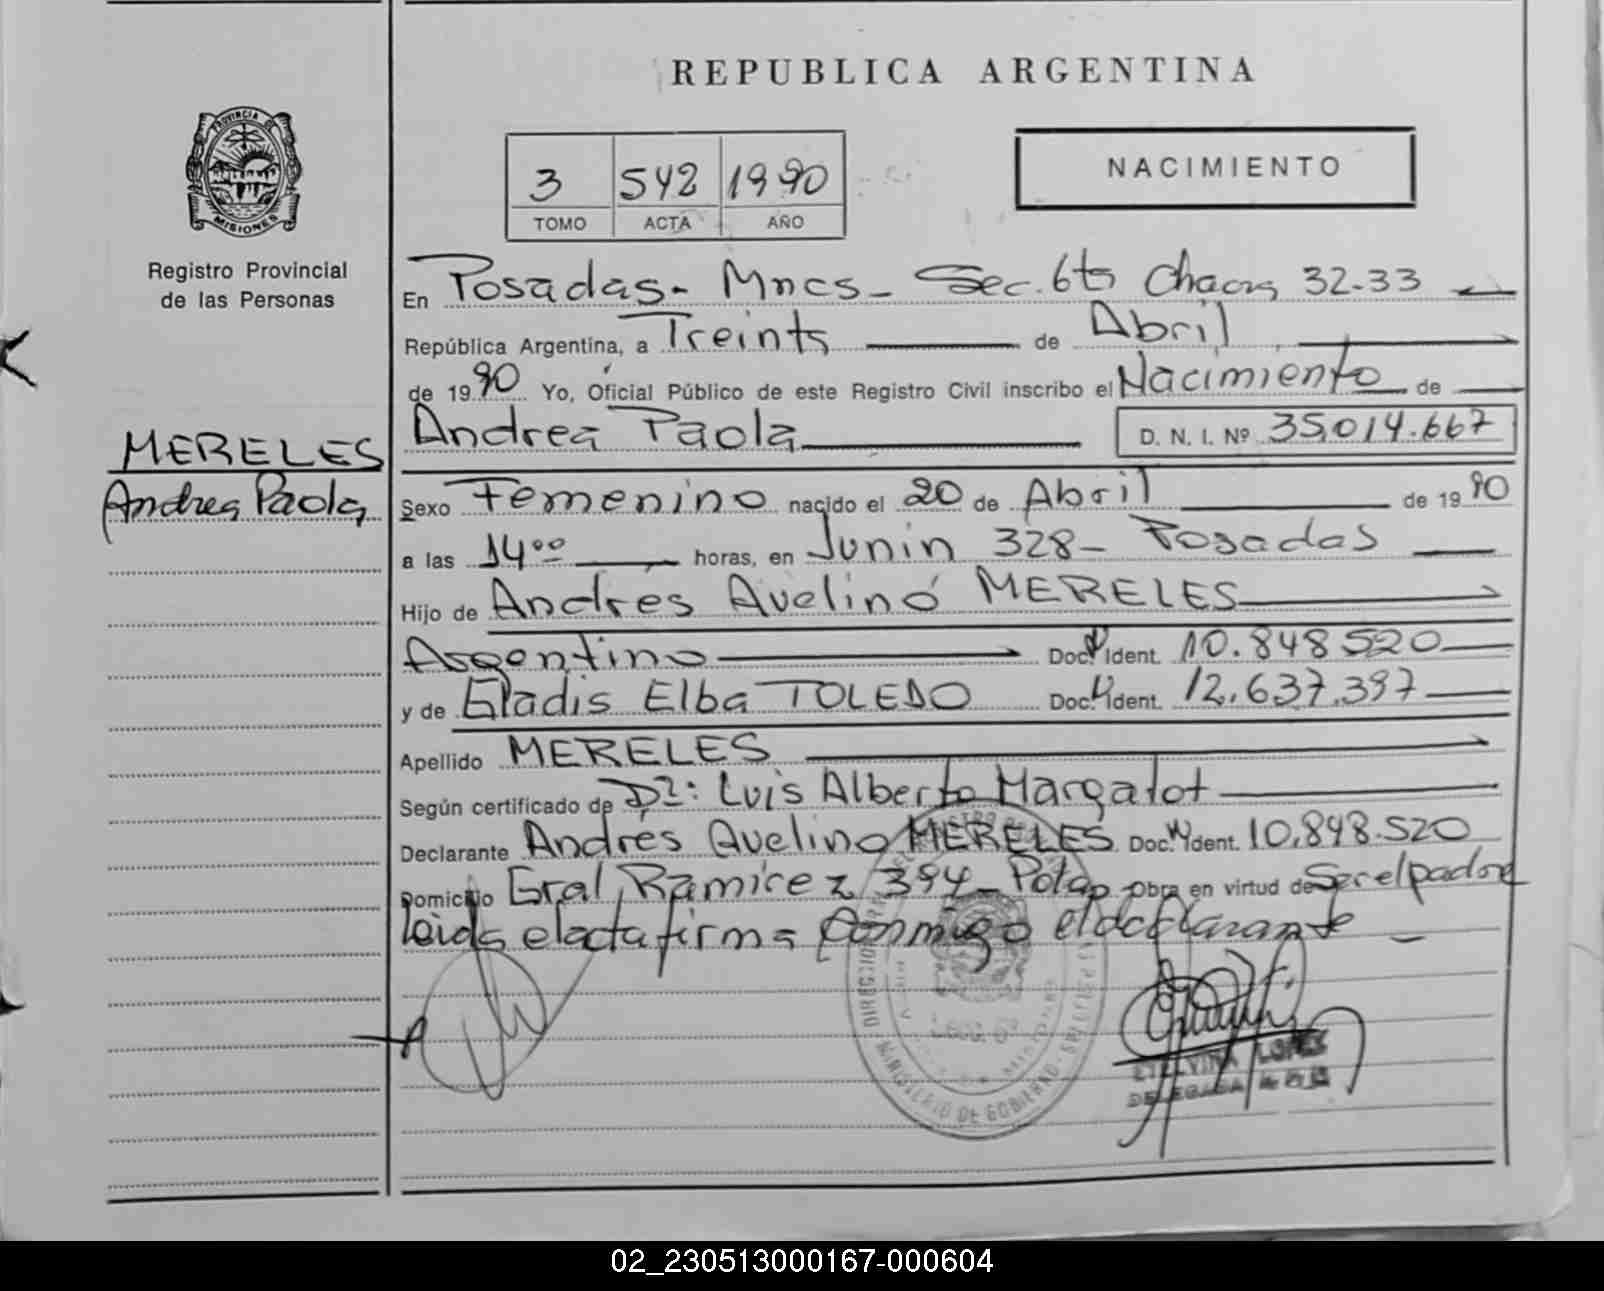 REPUBLICA ARGENTINA
PROVINCIA DE
MISIONES
Registro Provincial
de las Personas
3 542 1990
TOMO ACTA AÑO
NACIMIENTO
En Posadas - Mnes - Sec. 6ta Chacra 32-33
República Argentina, a Treinta de Abril
de 1990 Yo, Oficial Público de este Registro Civil inscribo el Nacimiento de
Andrea Paola D. N. I. Nº 35.014.667
MERELES
Andrea Paola
Sexo Femenino nacido el 20 de Abril de 1990
a las 14⁰⁰ horas, en Junin 328 - Posadas
Hijo de Andrés Avelino MERELES
Argentino Doc. Ident. 10.848.520
y de Gladis Elba TOLEDO Doc. Ident. 12.637.397
Apellido MERELES
Según certificado de Dr: Luis Alberto Margalot
Declarante Andrés Avelino MERELES Doc. Ident. 10.848.520
Domicilio Gral Ramirez 394 - Pdas Obra en virtud de Ser el padre
Leida el acta firma conmigo el declarante
MINISTERIO DE GOBIERNO
ETELVINA LOPEZ
DELEGADA
02_230513000167-000604